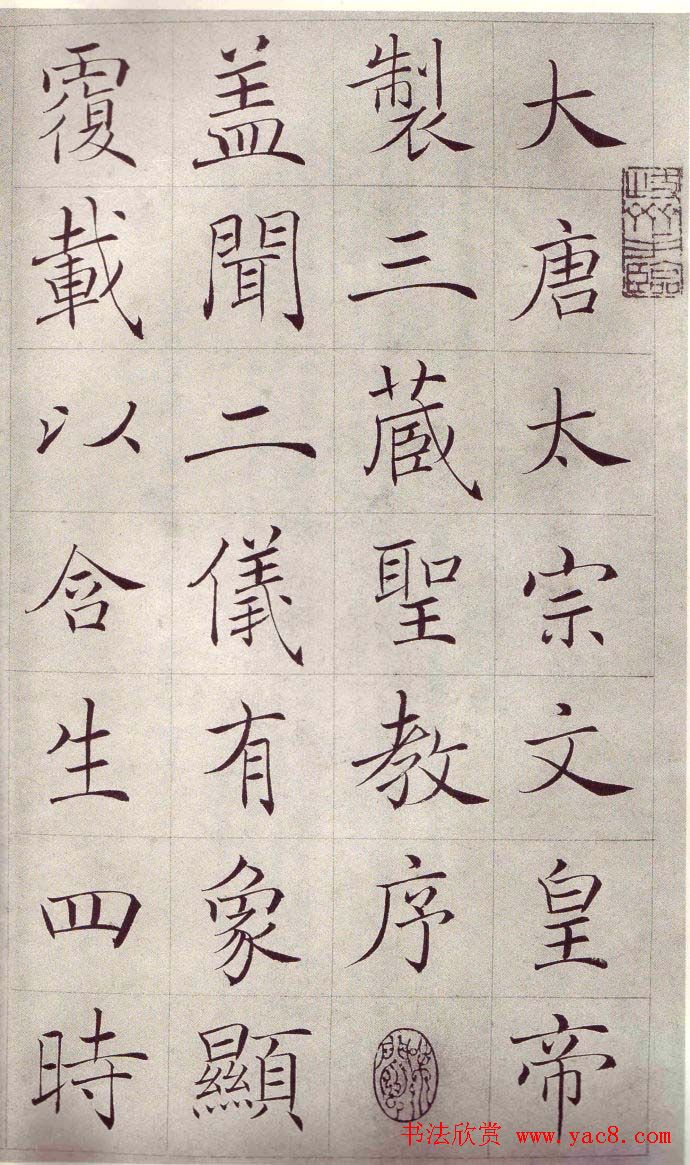 大唐太宗文皇帝
製三蔵聖教序
盖聞二儀有象顯
覆載以含生四時
书法欣赏 www.yac8.com